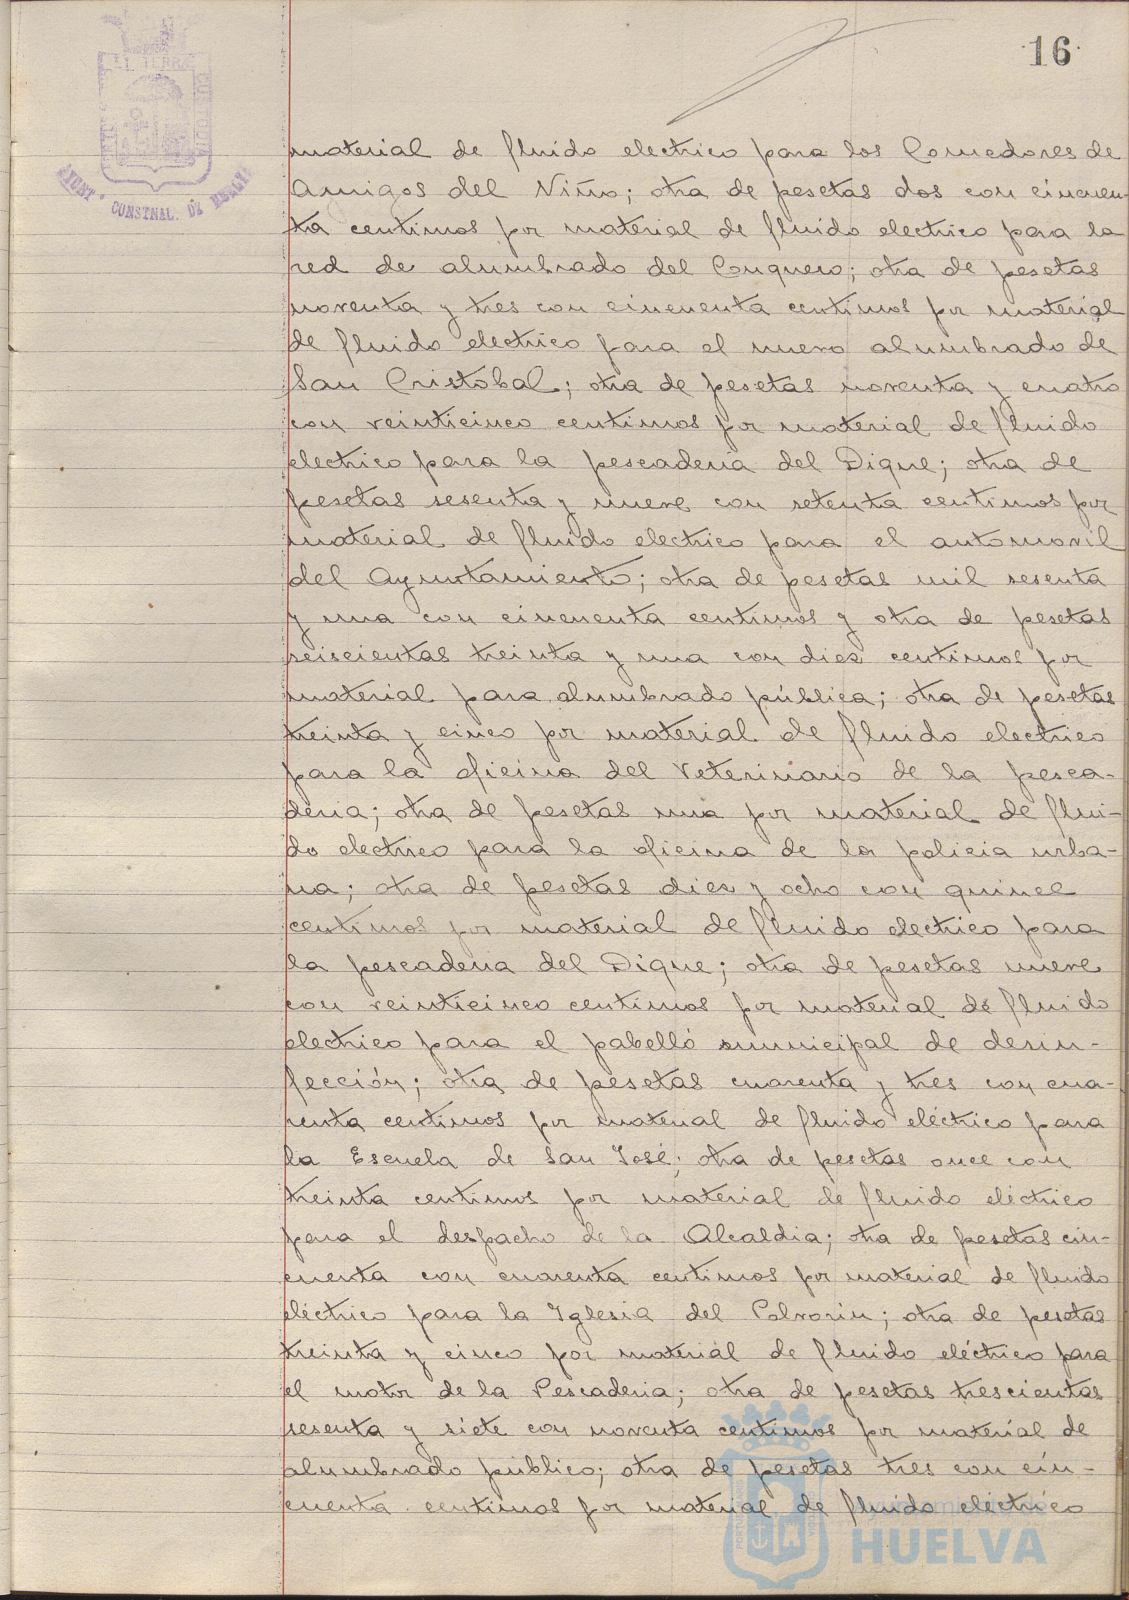 16
material de fluido electrico para los Comedores de
Amigos del Niño; otra de pesetas dos con cincuen-
ta centimos por material de fluido electrico para la
red de alumbrado del Conquero; otra de pesetas
noventa y tres con cincuenta centimos por material
de fluido electrico para el nuevo alumbrado de
San Cristobal; otra de pesetas noventa y cuatro
con veinticinco centimos por material de fluido
electrico para la pescaderia del Dique; otra de
pesetas sesenta y nueve con setenta centimos por
material de fluido electrico para el automovil
del Ayuntamiento; otra de pesetas mil sesenta
y una con cincuenta centimos y otra de pesetas
seiscientas treinta y una con diez centimos por
material para alumbrado pública; otra de pesetas
treinta y cinco por material de fluido electrico
para la oficina del Veterinario de la pesca-
deria; otra de pesetas una por material de flui-
do electrico para la oficina de la policia urba-
na; otra de pesetas diez y ocho con quince
centimos por material de fluido electrico para
la pescaderia del Dique; otra de pesetas nueve
con veinticinco centimos por material de fluido
electrico para el pabelló municipal de desin-
fección; otra de pesetas cuarenta y tres con cua-
renta centimos por material de fluido eléctrico para
la Escuela de San José; otra de pesetas once con
treinta centimos por material de fluido eléctrico
para el despacho de la Alcaldia; otra de pesetas cin-
cuenta con cuarenta centimos por material de fluido
eléctrico para la Iglesia del Polvorin; otra de pesetas
treinta y cinco por material de fluido eléctrico para
el motor de la Pescaderia; otra de pesetas trescientas
sesenta y siete con noventa centimos por material de
alumbrado publico; otra de pesetas tres con cin-
cuenta centimos por material de fluido eléctrico
HUELVA